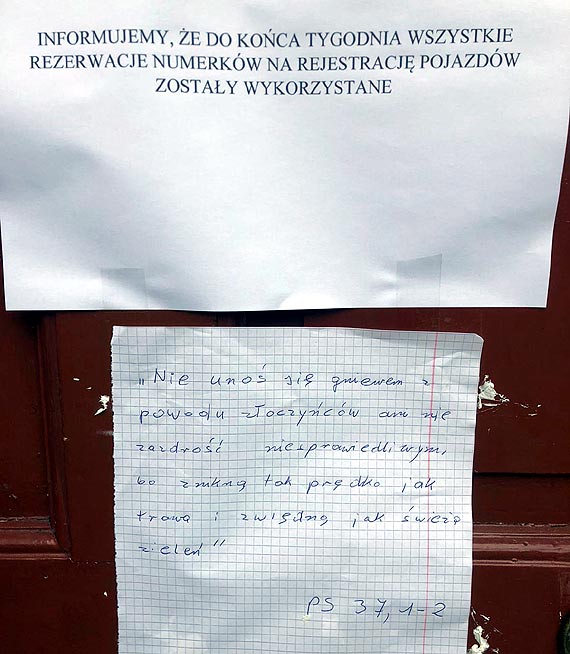 INFORMUJEMY, ŻE DO KOŃCA TYGODNIA WSZYSTKIE
REZERWACJE NUMERKÓW NA REJESTRACJĘ POJAZDÓW
ZOSTAŁY WYKORZYSTANE
„Nie unoś się gniewem z
powodu złoczyńców ani nie
zazdrość niesprawiedliwym,
bo znikną tak prędko jak
trawa i zwiędną jak świeża
zieleń"
PS 37, 1-2